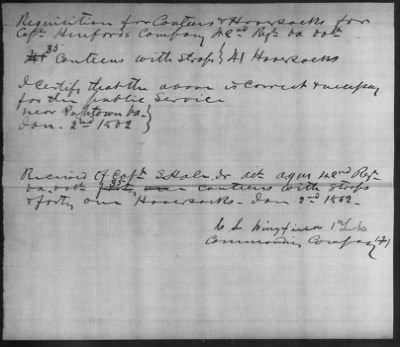 Requisition for Canteens & Haversacks for
Capt Company 42nd Regt Va Vols
41 35 Canteens with Straps } 41 Haversacks
I certify that the above is correct & necessary
for the public Service
near Va.
Jan. 2nd 1862 }
Received of Capt S Hale Jr act aqm 42nd Regt
Va. Vols 35 canteens with Straps
& forty one Haversacks. Jan 2nd 1862.
C L Wingfield 1st Lt
Commanding Company